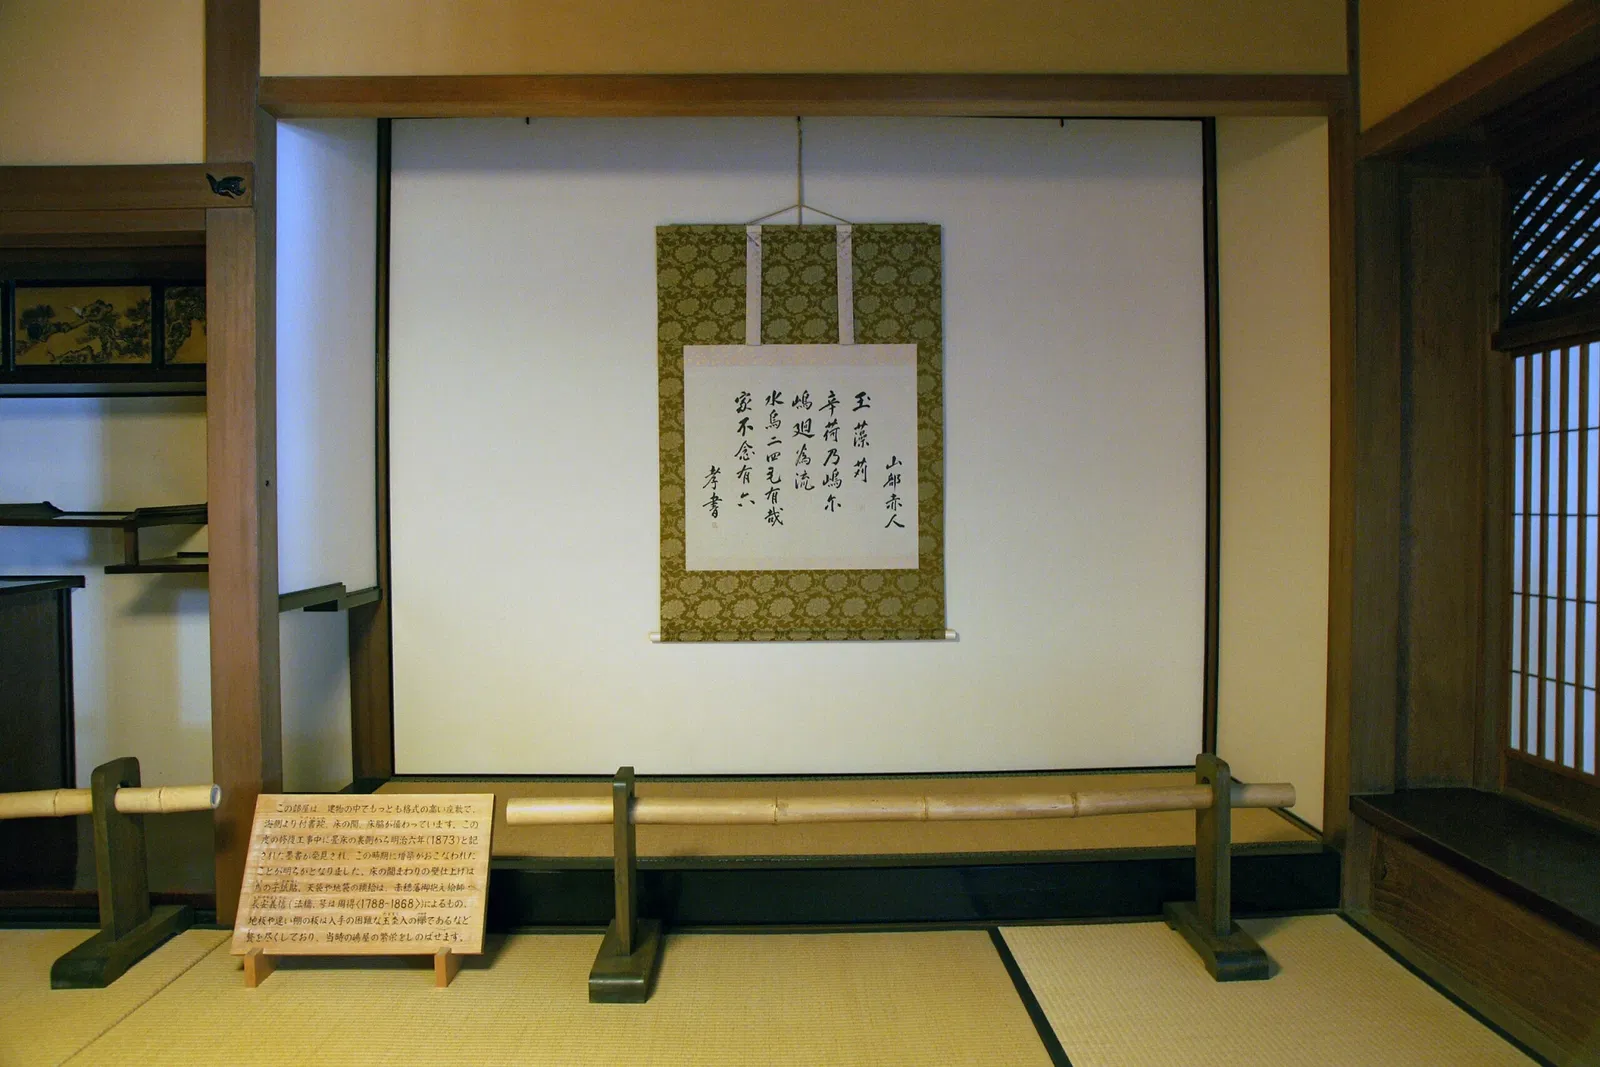 山部赤人
玉藻苅
辛荷乃嶋尓
嶋廻為流
水烏二四毛有哉
家不念有六
孝書
この部屋は、建物の中でもっとも格式の高い座敷で、
海側より付書院、床の間、床脇が備わっています。この
度の修復工事中に畳床の裏側から明治六年(1873)と記
された墨書が発見され、この時期に増築がおこなわれた
ことが明らかとなりました。床の間まわりの壁仕上げは
の子紙貼、天袋や地袋の襖絵は、赤穂藩御抱え絵師・
長安義信(法橋、琴は周得(1788-1868))によるもの。
地板や違い棚の板は入手の困難な玉杢入の欅であるなど
贅を尽くしており、当時の嶋屋の繁栄をしのばせます。